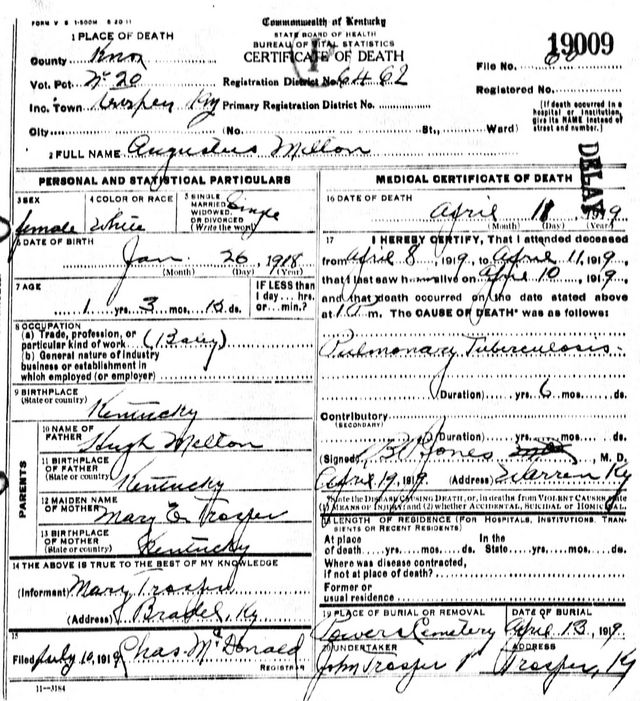 FORM V S 1-500M 6 20 11
Commonwealth of Kentucky
STATE BOARD OF HEALTH
BUREAU OF VITAL STATISTICS
CERTIFICATE OF DEATH
19009
1 PLACE OF DEATH
County Knox
Vot. Pct No 20
Registration District No. 6462
File No.
Registered No.
Inc. Town Ky
Primary Registration District No.
(If death occurred in a hospital or institution, give its NAME instead of street and number.)
City (No. St., Ward)
2 FULL NAME Augustus Melton
DELAY
PERSONAL AND STATISTICAL PARTICULARS
3 SEX
female
4 COLOR OR RACE
White
5 SINGLE MARRIED, WIDOWED, OR DIVORCED (Write the word)
Single
6 DATE OF BIRTH
Jan. 26, 1918
(Month) (Day) (Year)
7 AGE
IF LESS than 1 day... hrs. or...min.?
1 yrs. 3 mos. 15 ds.
8 OCCUPATION
(a) Trade, profession, or particular kind of work (Baby)
(b) General nature of industry business or establishment in which employed (or employer)
9 BIRTHPLACE
(State or country)
Kentucky
PARENTS
10 NAME OF FATHER
Hugh Melton
11 BIRTHPLACE OF FATHER
(State or country)
Kentucky
12 MAIDEN NAME OF MOTHER
Mary E Trosper
13 BIRTHPLACE OF MOTHER
(State or country)
Kentucky
14 THE ABOVE IS TRUE TO THE BEST OF MY KNOWLEDGE
(Informant) Mary Trosper
(Address) Ky
15
Filed July 10, 1919 Chas. McDonald
REGISTRAR
11-3184
MEDICAL CERTIFICATE OF DEATH
16 DATE OF DEATH
April 11, 1919
(Month) (Day) (Year)
17 I HEREBY CERTIFY, That I attended deceased
from April 8, 1919, to April 11, 1919
that I last saw h alive on April 10, 1919
and that death occurred on the date stated above
at m. The CAUSE OF DEATH* was as follows:
Pulmonary Tuberculosis
(Duration) yrs. 6 mos. ds.
Contributory
(SECONDARY)
(Duration) yrs. mos. ds.
(Signed) Jones M. D.
April 19, 1919 (Address) Warren Ky
*State the DISEASE CAUSING DEATH, or, in deaths from VIOLENT CAUSES, state (1) MEANS OF INJURY; and (2) whether ACCIDENTAL, SUICIDAL or HOMICIDAL.
18 LENGTH OF RESIDENCE (FOR HOSPITALS, INSTITUTIONS, TRANSIENTS OR RECENT RESIDENTS)
At place of death yrs. mos. ds. In the State yrs. mos. ds.
Where was disease contracted, if not at place of death?
Former or usual residence
19 PLACE OF BURIAL OR REMOVAL
Powers Cemetery
DATE OF BURIAL
April 13, 1919
20 UNDERTAKER
John Trosper
ADDRESS
Trosper, Ky